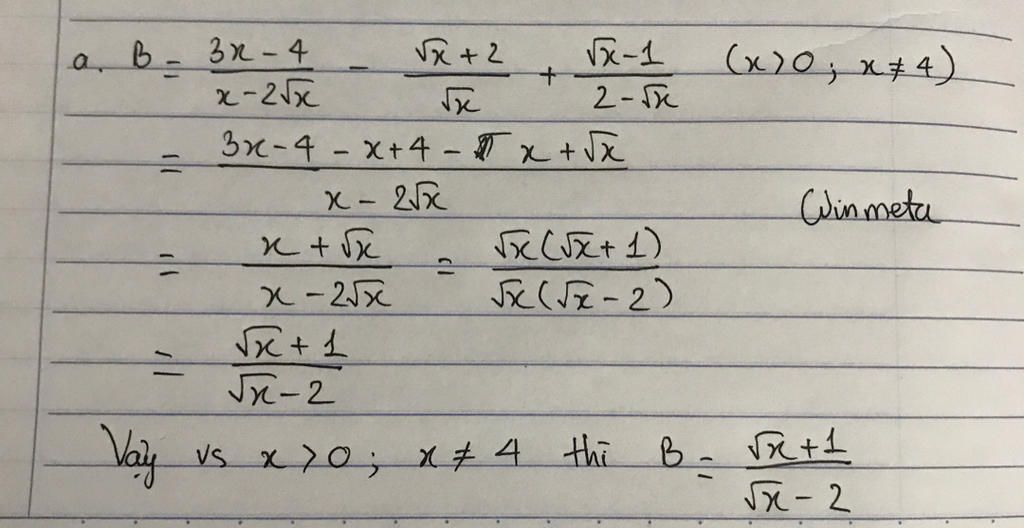 a. B = (3x - 4)/(x - 2√x) - (√x + 2)/√x + (√x - 1)/(2 - √x) (x > 0 ; x ≠ 4)
= (3x - 4 - x + 4 - x + √x)/(x - 2√x)
Winmeta
= (x + √x)/(x - 2√x) = √x(√x + 1)/√x(√x - 2)
= (√x + 1)/(√x - 2)
Vậy vs x > 0 ; x ≠ 4 thì B = (√x + 1)/(√x - 2)